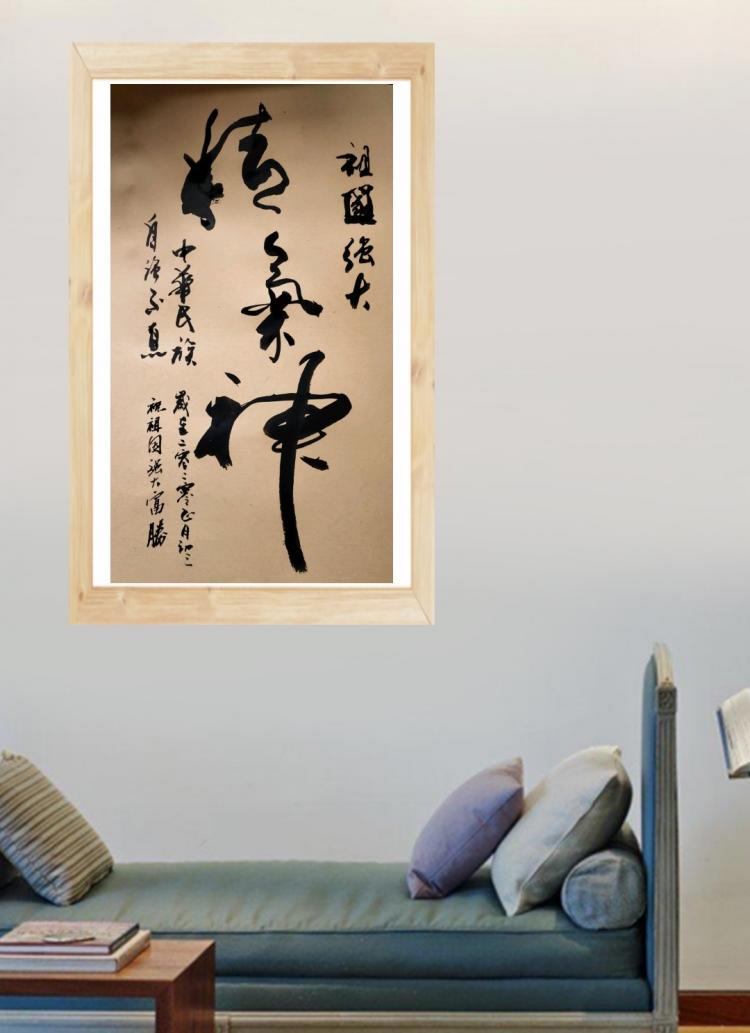 祖國強大
精氣神
中華民族
自強不息
歲在二零二零年正月初三
祝祖国強大富勝